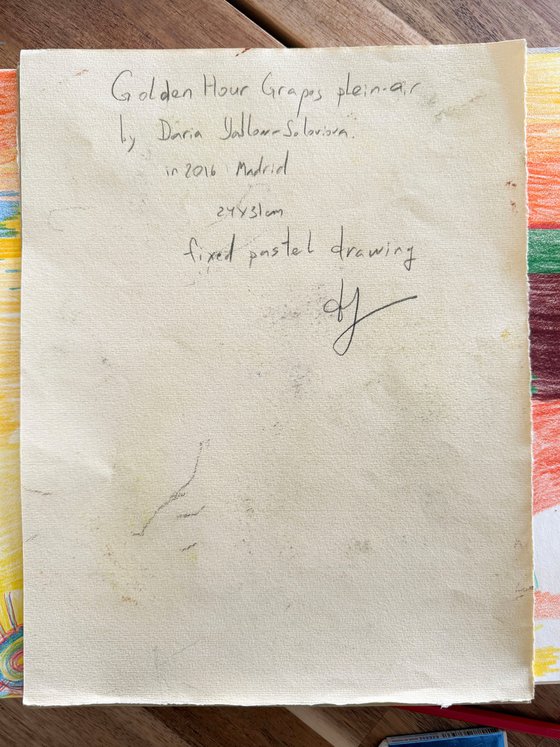 Golden Hour Grapes plein-air
by Daria Yablon-Soloviova.
in 2016 Madrid
24x31cm
fixed pastel drawing
dy